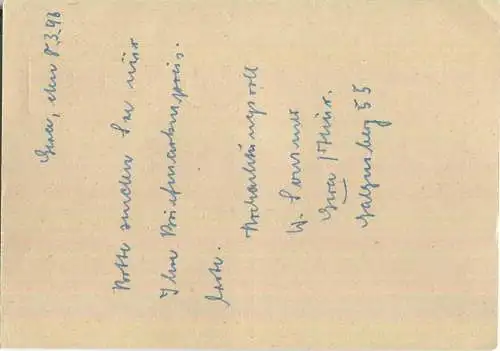 Gera, den 8.3.46
Bitte senden Sie mir
Ihre Briefmarkenpreis-
liste.
Hochachtungsvoll
W. Sommer
Gera / Thür.
Galgenberg 55